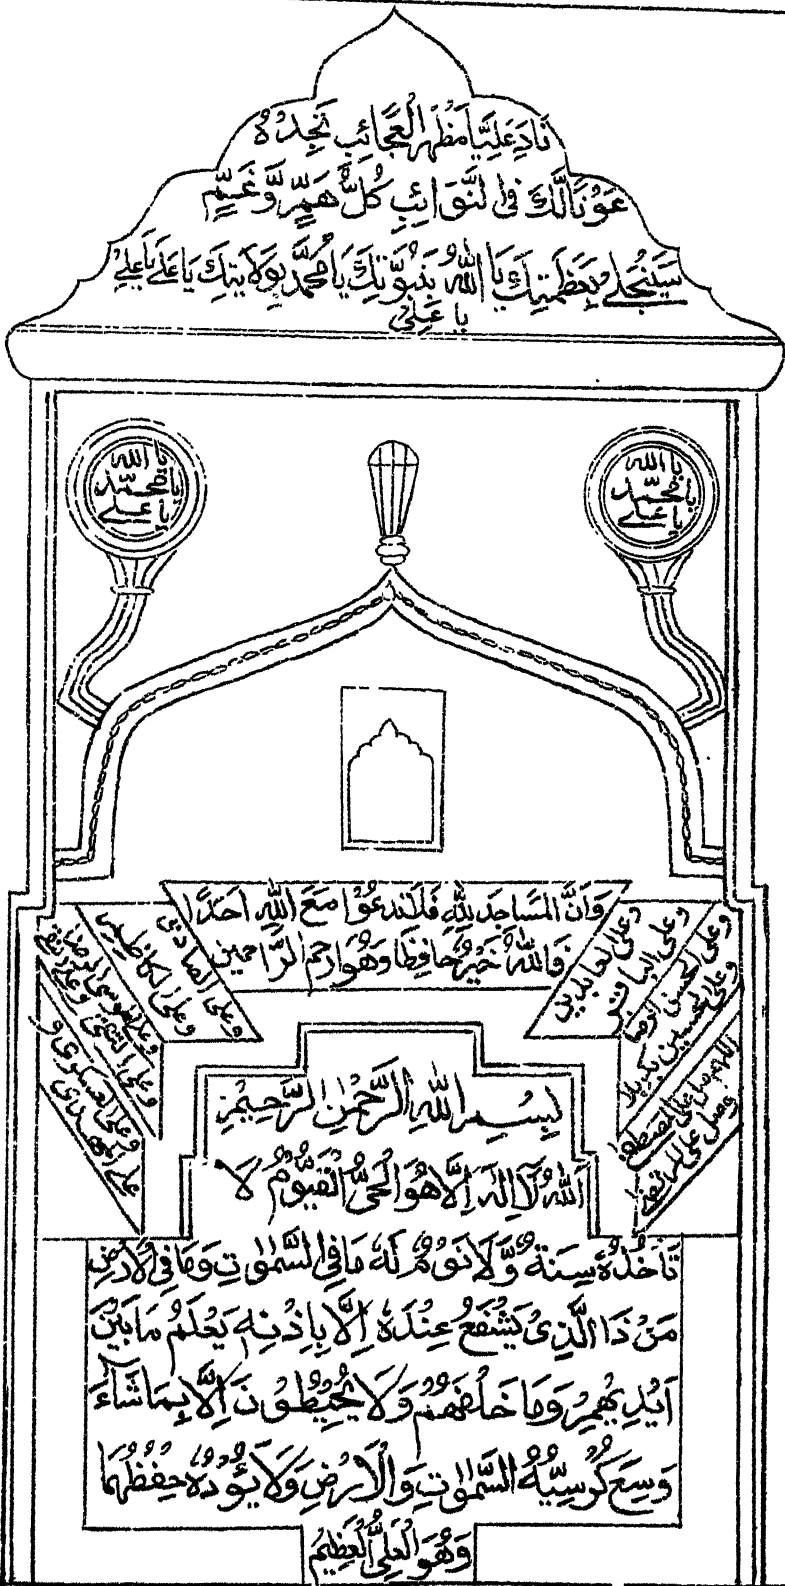 نَادِ عَلِيًّا مَظْهَرَ الْعَجَائِبِ تَجِدْهُ
عَوْنًا لَّكَ فِي النَّوَائِبِ كُلُّ هَمٍّ وَّغَمٍّ
سَيَنْجَلِي بِعَظَمَتِكَ يَا اللهُ بِنُبُوَّتِكَ يَا مُحَمَّدُ بِوَلَايَتِكَ يَا عَلِيُّ يَا عَلِيُّ
يَا عَلِيُّ
يا الله
يا محمد
يا علي
يا الله
يا محمد
يا علي
وَاَنَّ الْمَسَاجِدَ لِلّٰهِ فَلَا تَدْعُوْا مَعَ اللّٰهِ اَحَدًا
فَاللّٰهُ خَيْرٌ حَافِظًا وَهُوَ ارحم الرَّاحمين
اللهم صل على المصطفى
وصل على المرتضى
وعلى الحسن الرضا
وعلى الحسين بكربلا
وعلى العابدين
وعلى الباقر
وعلى الصادق
وعلى الكاظمين
وعلى موسى الرضا
وعلى التقي
وعلى النقي
وعلى العسكري و
على المهدي
بِسْمِ اللّٰهِ الرَّحْمٰنِ الرَّحِيْمِ
اَللّٰهُ لَآ اِلٰهَ اِلَّا هُوَ الْحَيُّ الْقَيُّوْمُ لَا
تَاْخُذُهٗ سِنَةٌ وَّلَا نَوْمٌ لَهٗ مَا فِي السَّمٰوٰتِ وَمَا فِي الْاَرْضِ
مَنْ ذَا الَّذِيْ يَشْفَعُ عِنْدَهٗ اِلَّا بِاِذْنِهٖ يَعْلَمُ مَا بَيْنَ
اَيْدِيْهِمْ وَمَا خَلْفَهُمْ وَلَا يُحِيْطُوْنَ اِلَّا بِمَا شَآءَ
وَسِعَ كُرْسِيُّهُ السَّمٰوٰتِ وَالْاَرْضِ وَلَا يَئُوْدُهٗ حِفْظُهُمَا
وَهُوَ الْعَلِيُّ الْعَظِيْمُ